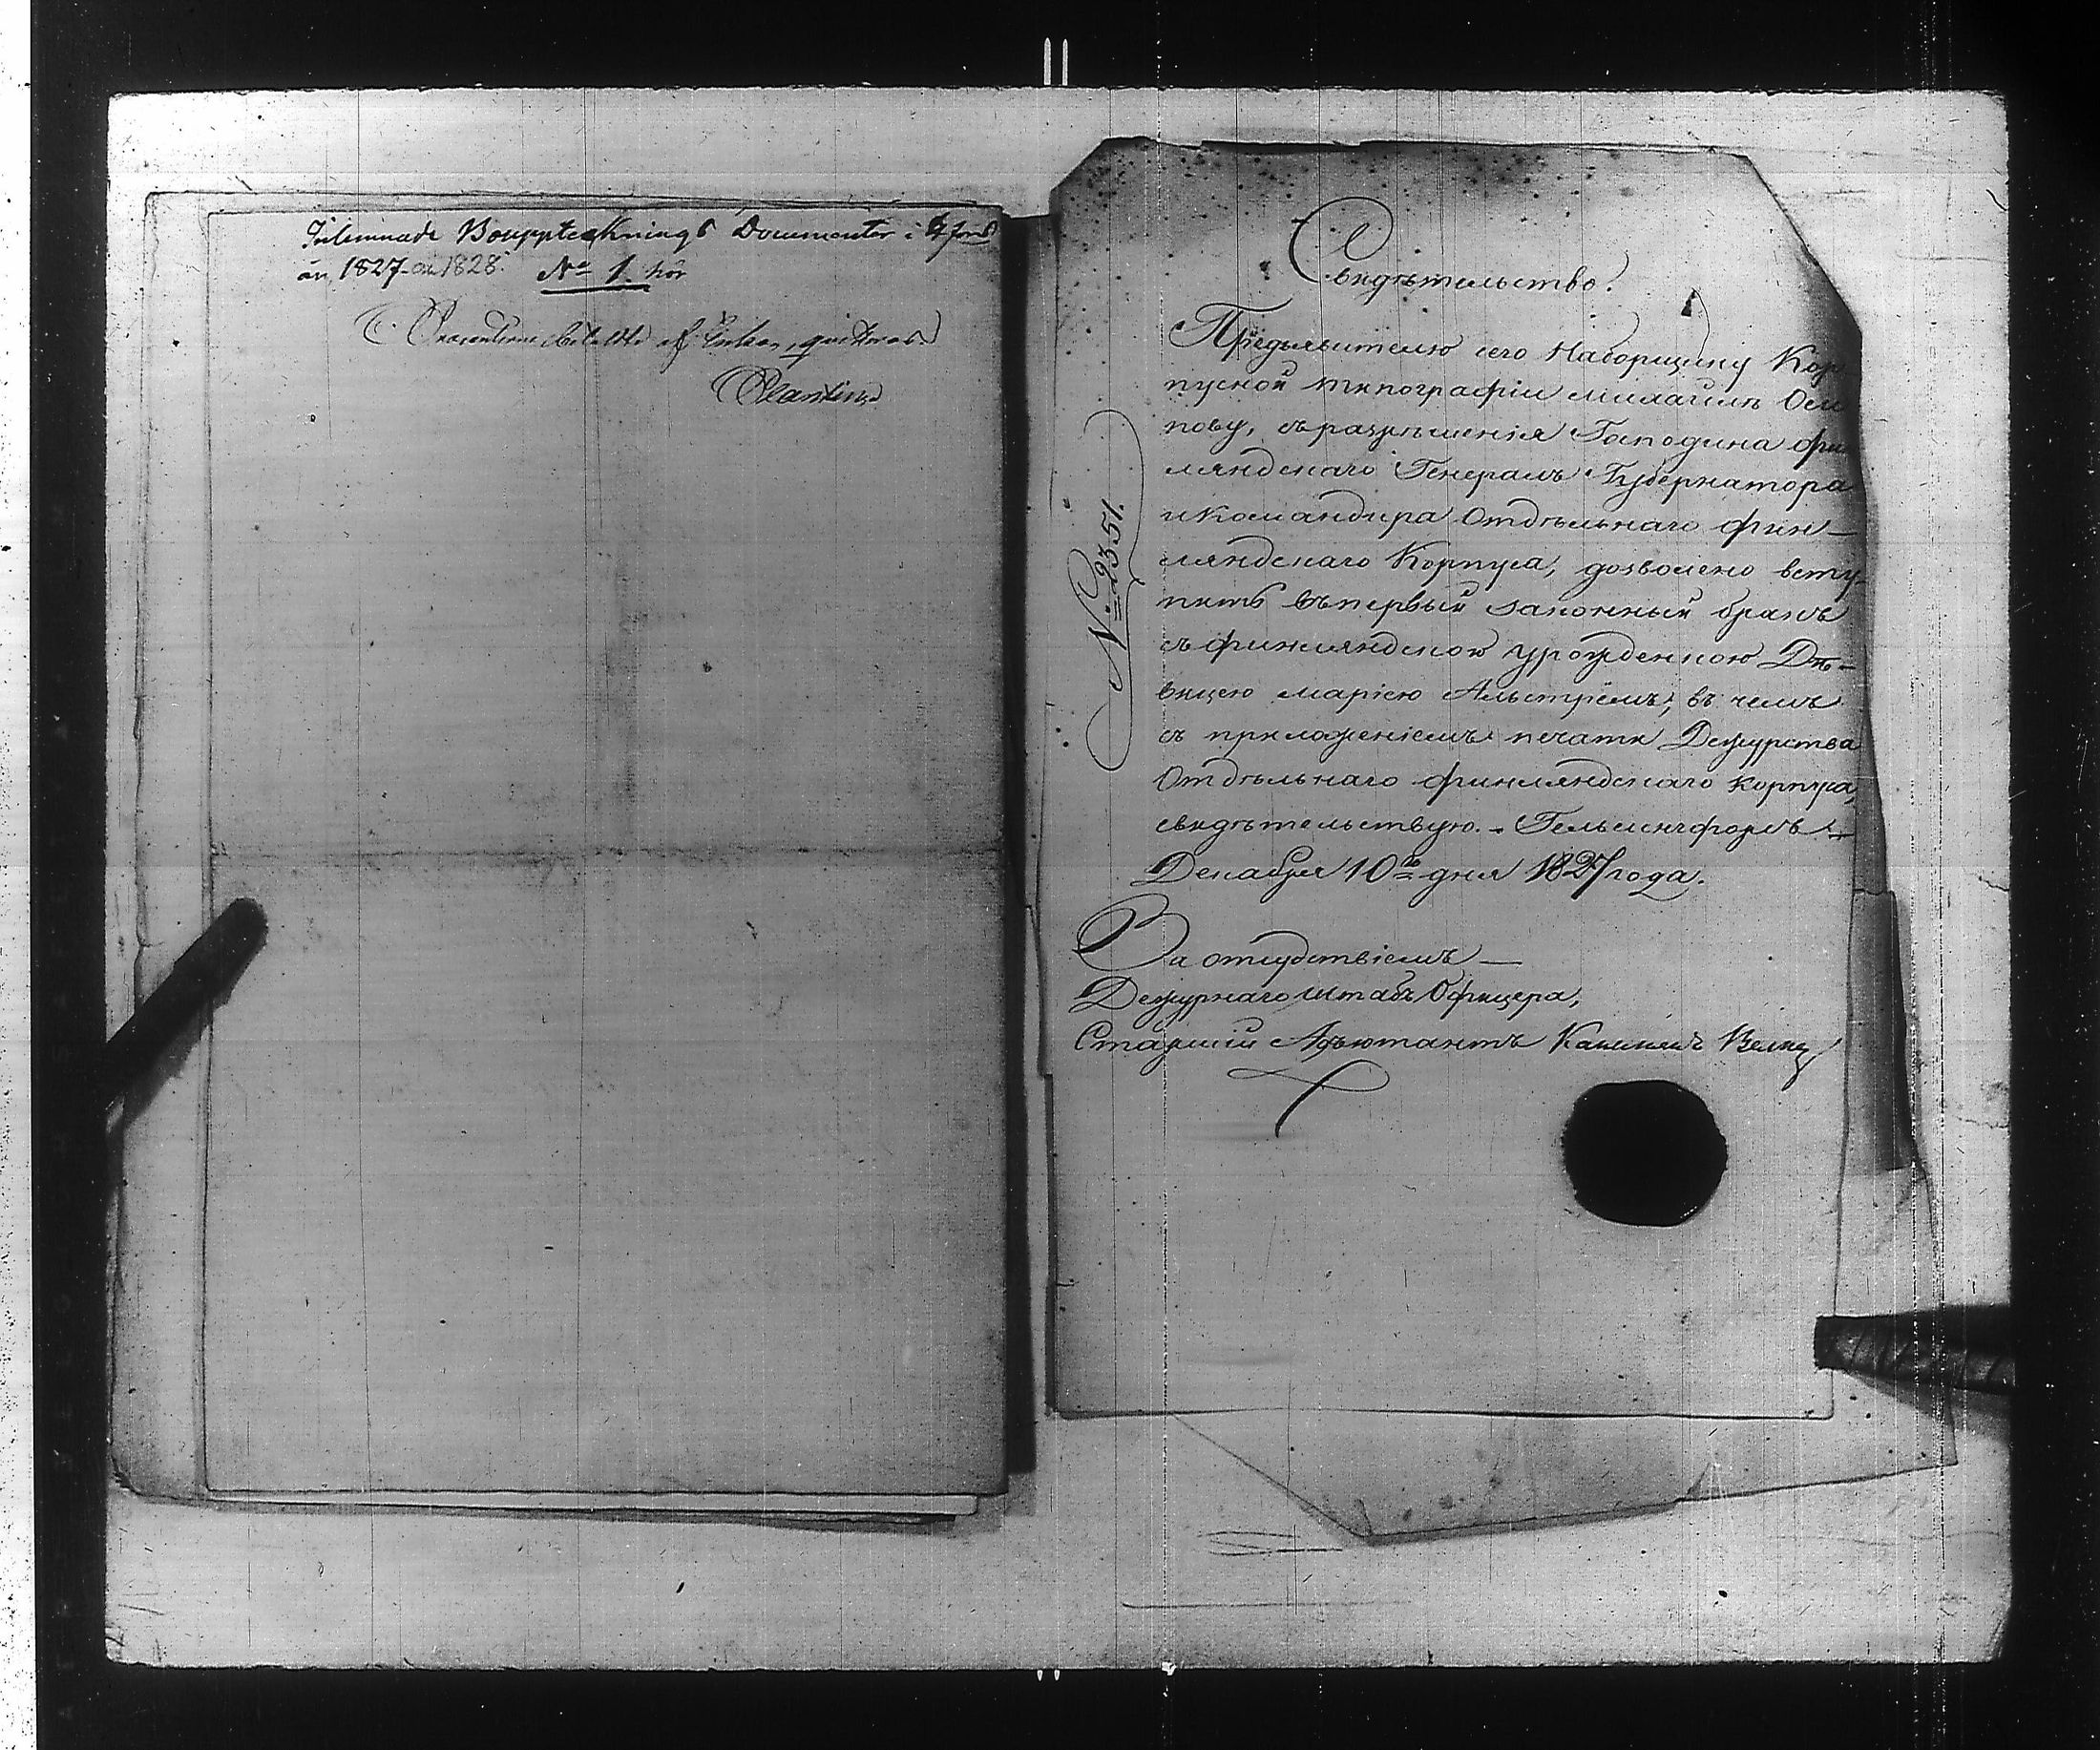 Inlemnade Bouppteknings Documenter i
år 1827 - och 1828. No 1. hör
af quitteras
Свидѣтельство.
Предъявителю сего Наборщику Кор
пусной типографіи Михайлѣ Оси
пову, съ разрѣшенія Господина Фин
ляндскаго Генералъ Губернатора
и Командира Отдѣльнаго Фин-
ляндскаго Корпуса, дозволено всту-
пить въ первый законный бракъ
съ Финляндскою урожденкою Дѣ-
вицею Маріею Альстремъ; въ чемъ
съ приложеніемъ печати Дежурства
Отдѣльнаго Финляндскаго Корпуса,
свидѣтельствую. - Гельсингфорсъ -
Декабря 10го дня 1827 года.
No 2351.
За отсудствіемъ -
Дежурнаго Штабъ Офицера,
Старшій Адъютантъ